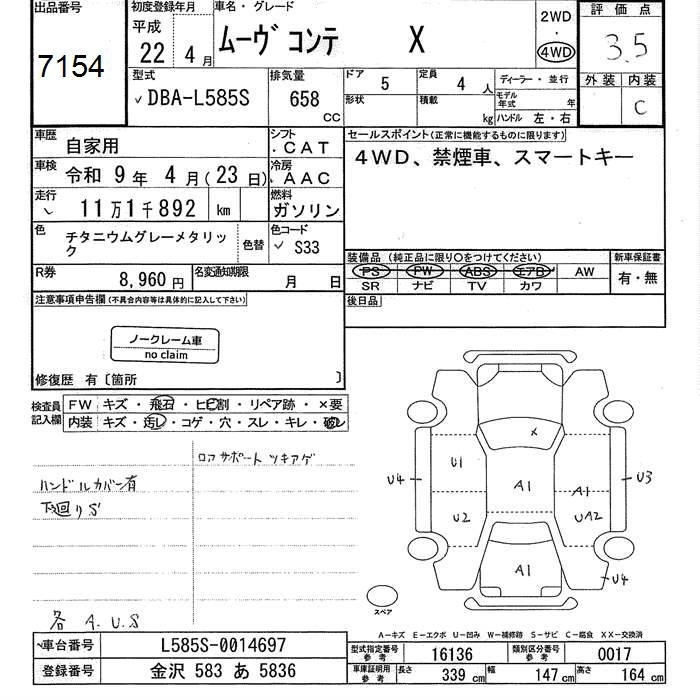 出品番号
7154
初度登録年月
平成
22 年 4 月
車名・グレード
ムーヴ コンテ X
2WD
・
4WD
評価点
3.5
外装 内装
C
型式
DBA-L585S
排気量
658
CC
ドア 5
定員 4 人
形状
積載 kg
ディーラー・並行
モデル年式 年
ハンドル 左・右
車歴 自家用
シフト
CAT
車検 令和 9 年 4 月(23 日)
冷房
AAC
走行 11万1千892 km
燃料
ガソリン
色 チタニウムグレーメタリック
色替
色コード
S33
R券 8,960 円
名変通知期限 月 日
セールスポイント(正常に機能するものに限ります)
4WD、禁煙車、スマートキー
装備品 (純正品に限り○をつけてください)
新車保証書
PS PW ABS エアB AW
SR ナビ TV カワ
有・無
後日品
注意事項申告欄(不具合内容等は具体的に記入して下さい)
ノークレーム車
no claim
修復歴 有〔箇所 〕
検査員記入欄
FW キズ・飛石・ヒビ割・リペア跡・×要
内装 キズ・汚レ・コゲ・穴・スレ・キレ・破レ
ロアサポートツキアゲ
ハンドルカバー有
下廻りS
各 A.U.S
X
U1
U4
A1
A1
U3
U2
UA2
A1
U4
スペア
A-キズ E-エクボ U-凹み W-補修跡 S-サビ C-腐食 XX-交換済
車台番号 L585S-0014697
登録番号 金沢 583 あ 5836
型式指定番号 参考 16136
類別区分番号 参考 0017
車庫証明用 参考 長さ 339 cm 幅 147 cm 高さ 164 cm